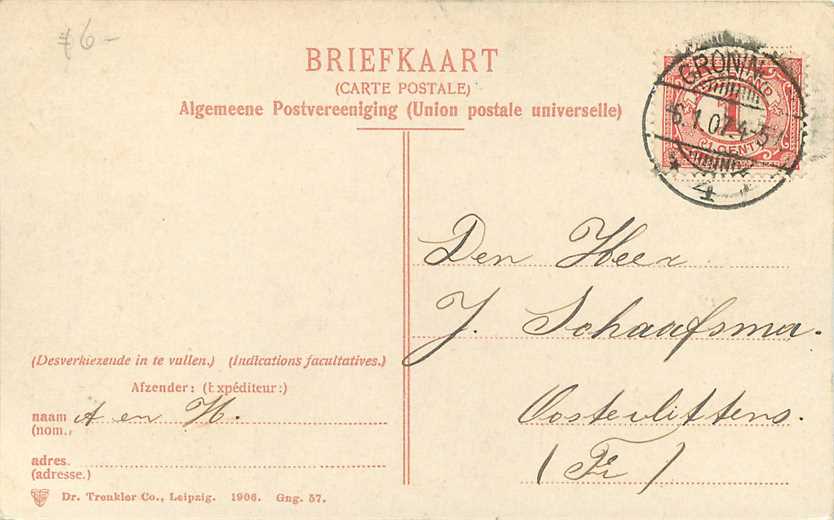 6-
BRIEFKAART
(CARTE POSTALE)
Algemeene Postvereeniging (Union postale universelle)
GRONIN
6.1.07.4-5
4
1
CENT
Den Heer
J. Schaafsma.
Oosterlittens.
(Fr)
(Desverkiezende in te vullen.) (Indications facultatives.)
Afzender: (Expéditeur:)
naam A en H.
(nom.,
adres.
(adresse.)
Dr. Trenkler Co., Leipzig. 1906. Gng. 57.